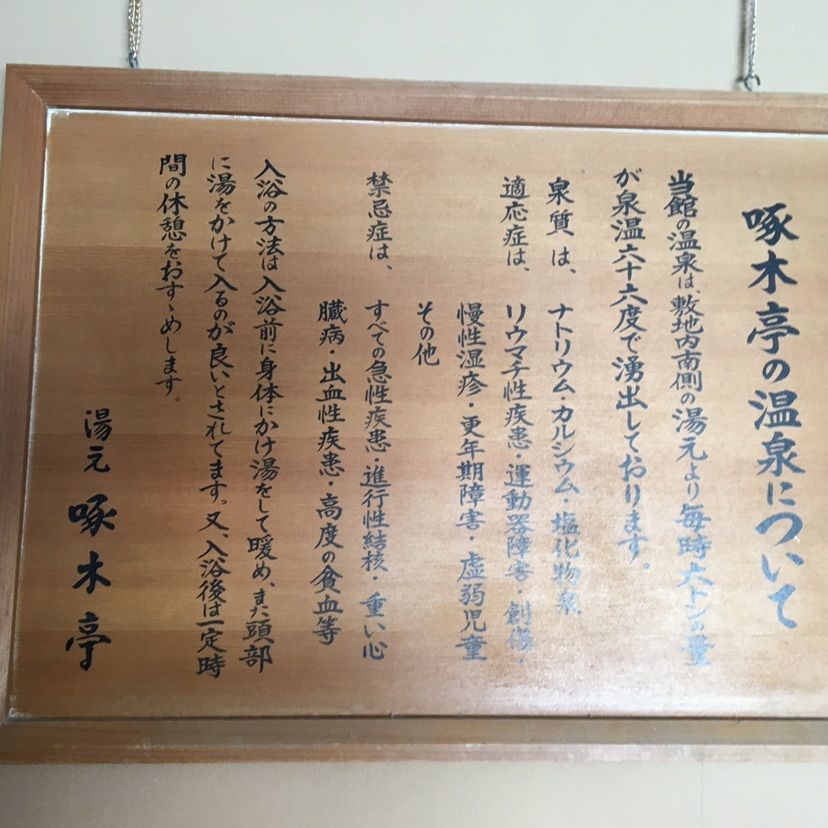 啄木亭の温泉について
当館の温泉は、敷地内南側の湯元より毎時大トンの量
が泉温六十六度で湧出しております。
泉質は、ナトリウム・カルシウム・塩化物泉
適応症は、リウマチ性疾患・運動器障害・創傷・
慢性湿疹・更年期障害・虚弱児童
その他
禁忌症は、すべての急性疾患・進行性結核・重い心
臓病・出血性疾患・高度の貧血等
入浴の方法は入浴前に身体にかけ湯をして暖め、また頭部
に湯をかけて入るのが良いとされてます。又、入浴後は一定時
間の休憩をおすゝめします。
湯元 啄木亭